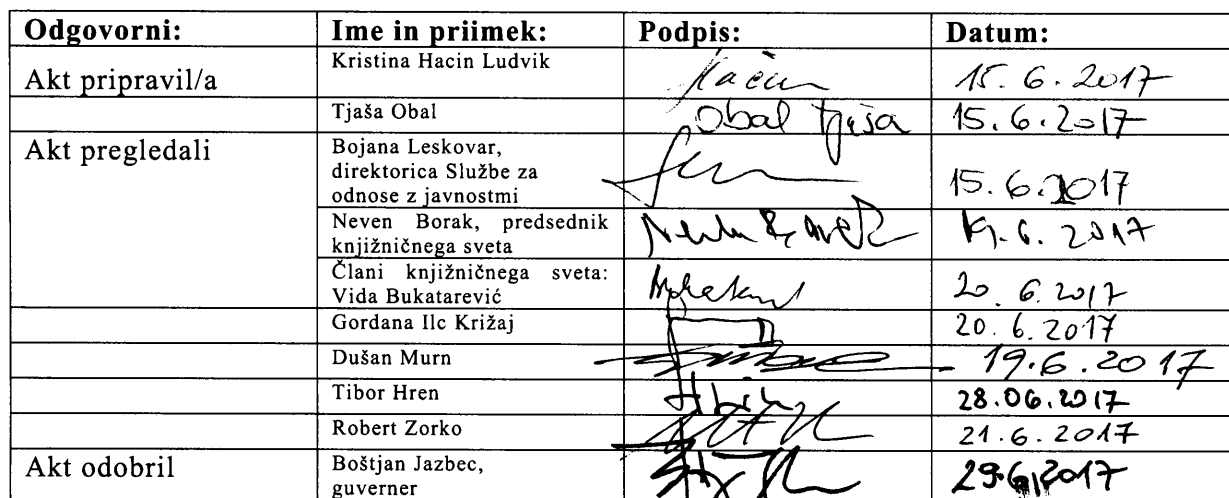 Odgovorni: Ime in priimek: Podpis: Datum:
Akt pripravil/a Kristina Hacin Ludvik Hacin 15. 6. 2017
Tjaša Obal Obal Tjaša 15. 6. 2017
Akt pregledali Bojana Leskovar,
direktorica Službe za
odnose z javnostmi 15. 6. 2017
Neven Borak, predsednik
knjižničnega sveta 19. 6. 2017
Člani knjižničnega sveta:
Vida Bukatarević 20. 6. 2017
Gordana Ilc Križaj 20. 6. 2017
Dušan Murn 19.6.2017
Tibor Hren 28.06.2017
Robert Zorko 21.6.2017
Akt odobril Boštjan Jazbec,
guverner 29.6.2017